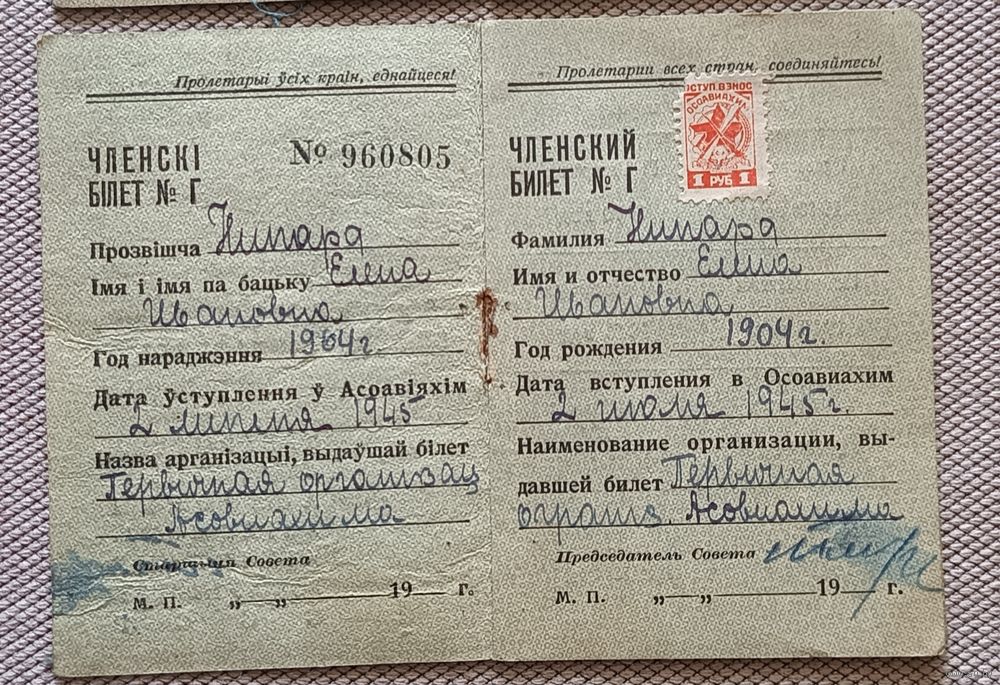 Пролетарыі ўсіх краін, еднайцеся!
ЧЛЕНСКІ
БІЛЕТ № Г
№ 960805
Прозвішча Нипара
Імя і імя па бацьку Елена
Ивановна
Год нараджэння 1904 г.
Дата ўступлення ў Асоавіяхім
2 липеня 1945
Назва арганізацыі, выдаўшай білет
Первичная организац
Асовиахима
Старшиня Совета
М. П. „—„ 19 г.
Пролетарии всех стран, соединяйтесь!
ВСТУП. ВЗНОС
ОСОАВИАХИМ
1 РУБ 1
ЧЛЕНСКИЙ
БИЛЕТ № Г
Фамилия Нипара
Имя и отчество Елена
Ивановна
Год рождения 1904 г.
Дата вступления в Осоавиахим
2 июля 1945 г.
Наименование организации, вы-
давшей билет Первичная
органз. Асовиахима
Председатель Совета
М. П. „—„ 19 г.